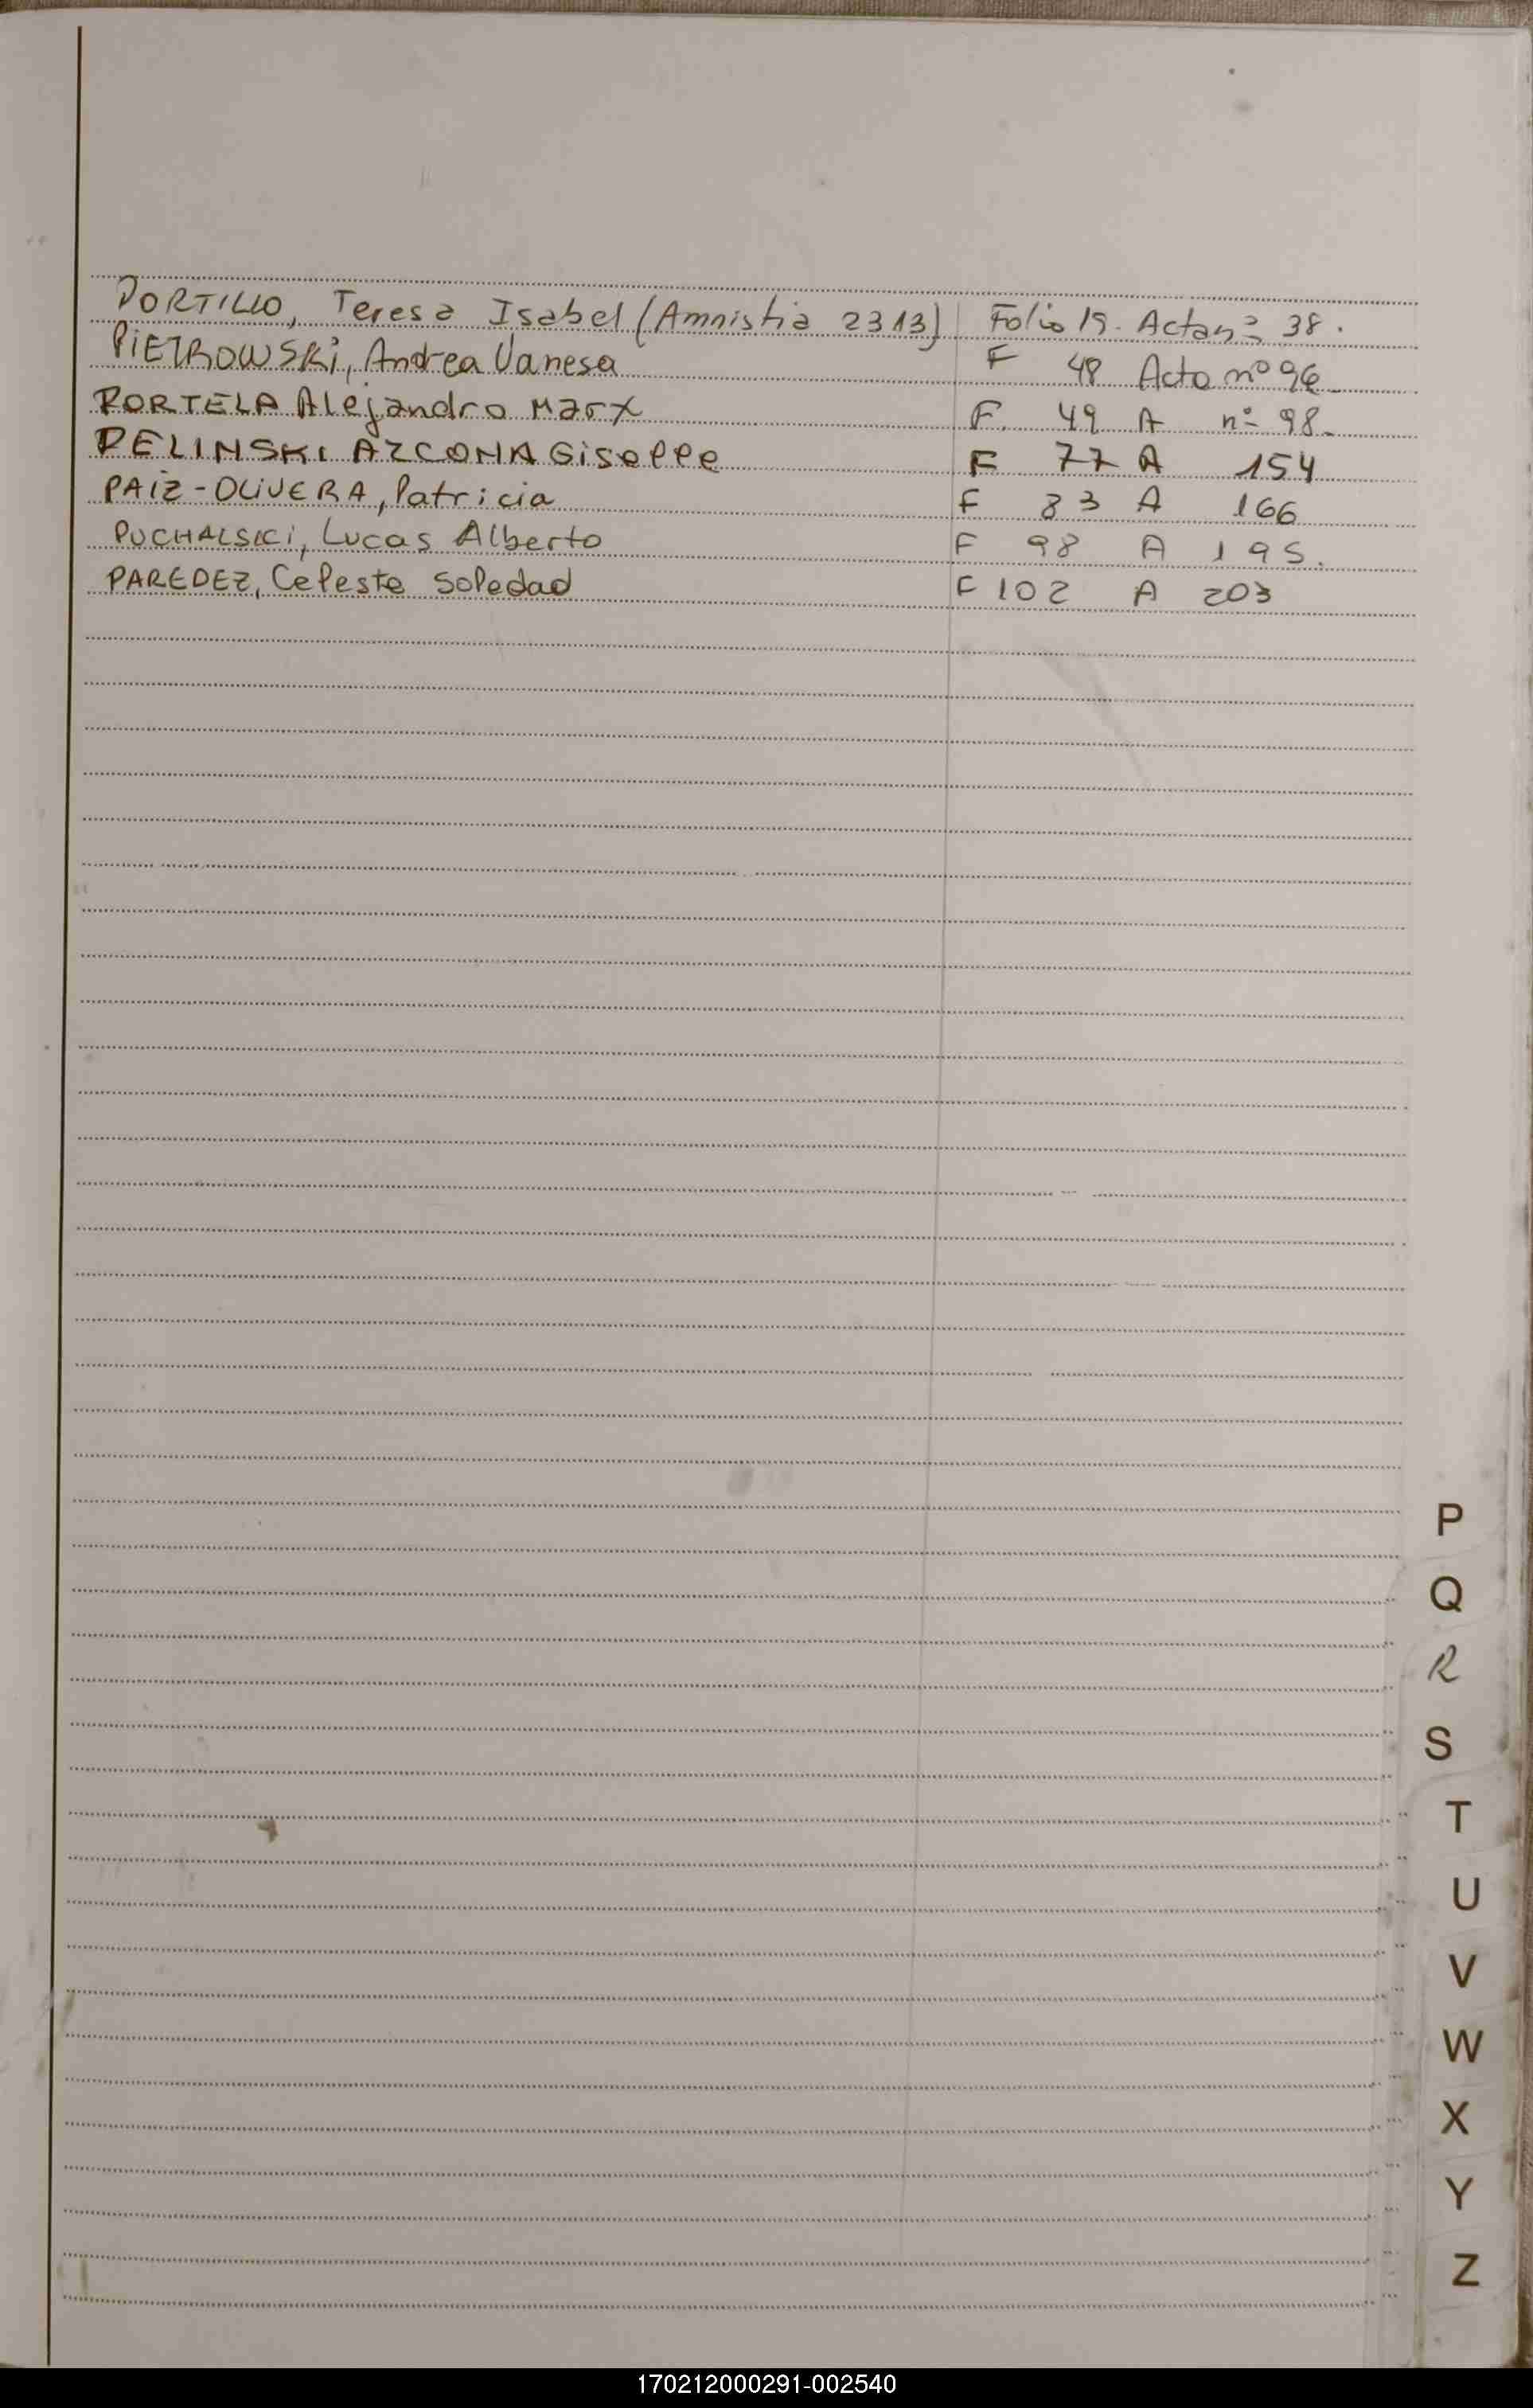 PORTILLO, Teresa Isabel (Amnistia 2313) Folio 19. Acta nº 38.
PiETROWSKi, Andrea Vanesa F 48 Acta nº 96
PORTELA Alejandro Marx F. 49 A nº 98.
PELINSKI AZCONA Giselle F 77 A 154
PAiZ-OLiVERA, Patricia F 83 A 166
PUCHALSKi, Lucas Alberto F 98 A 195.
PAREDEZ, Celeste Soledad F 102 A 203
P
Q
R
S
T
U
V
W
X
Y
Z
170212000291-002540